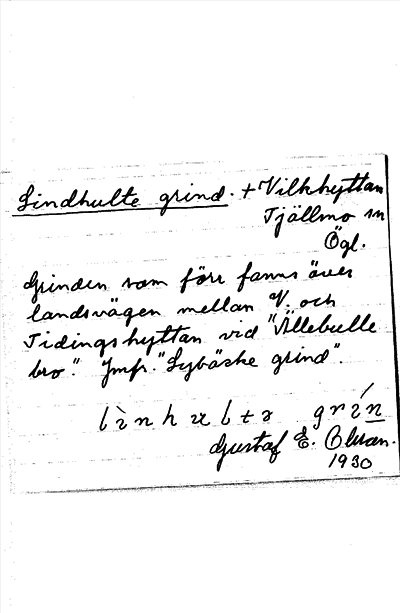 Lindhulte grind. + Vilkhyttan
Tjällmo sn
Ögl.
Grinden som förr fanns över
landsvägen mellan V. och
Tidingshyttan vid "Villebulle
bro". Jmfr. "Lybäske grind".
Gustaf E. Bliran.
1930